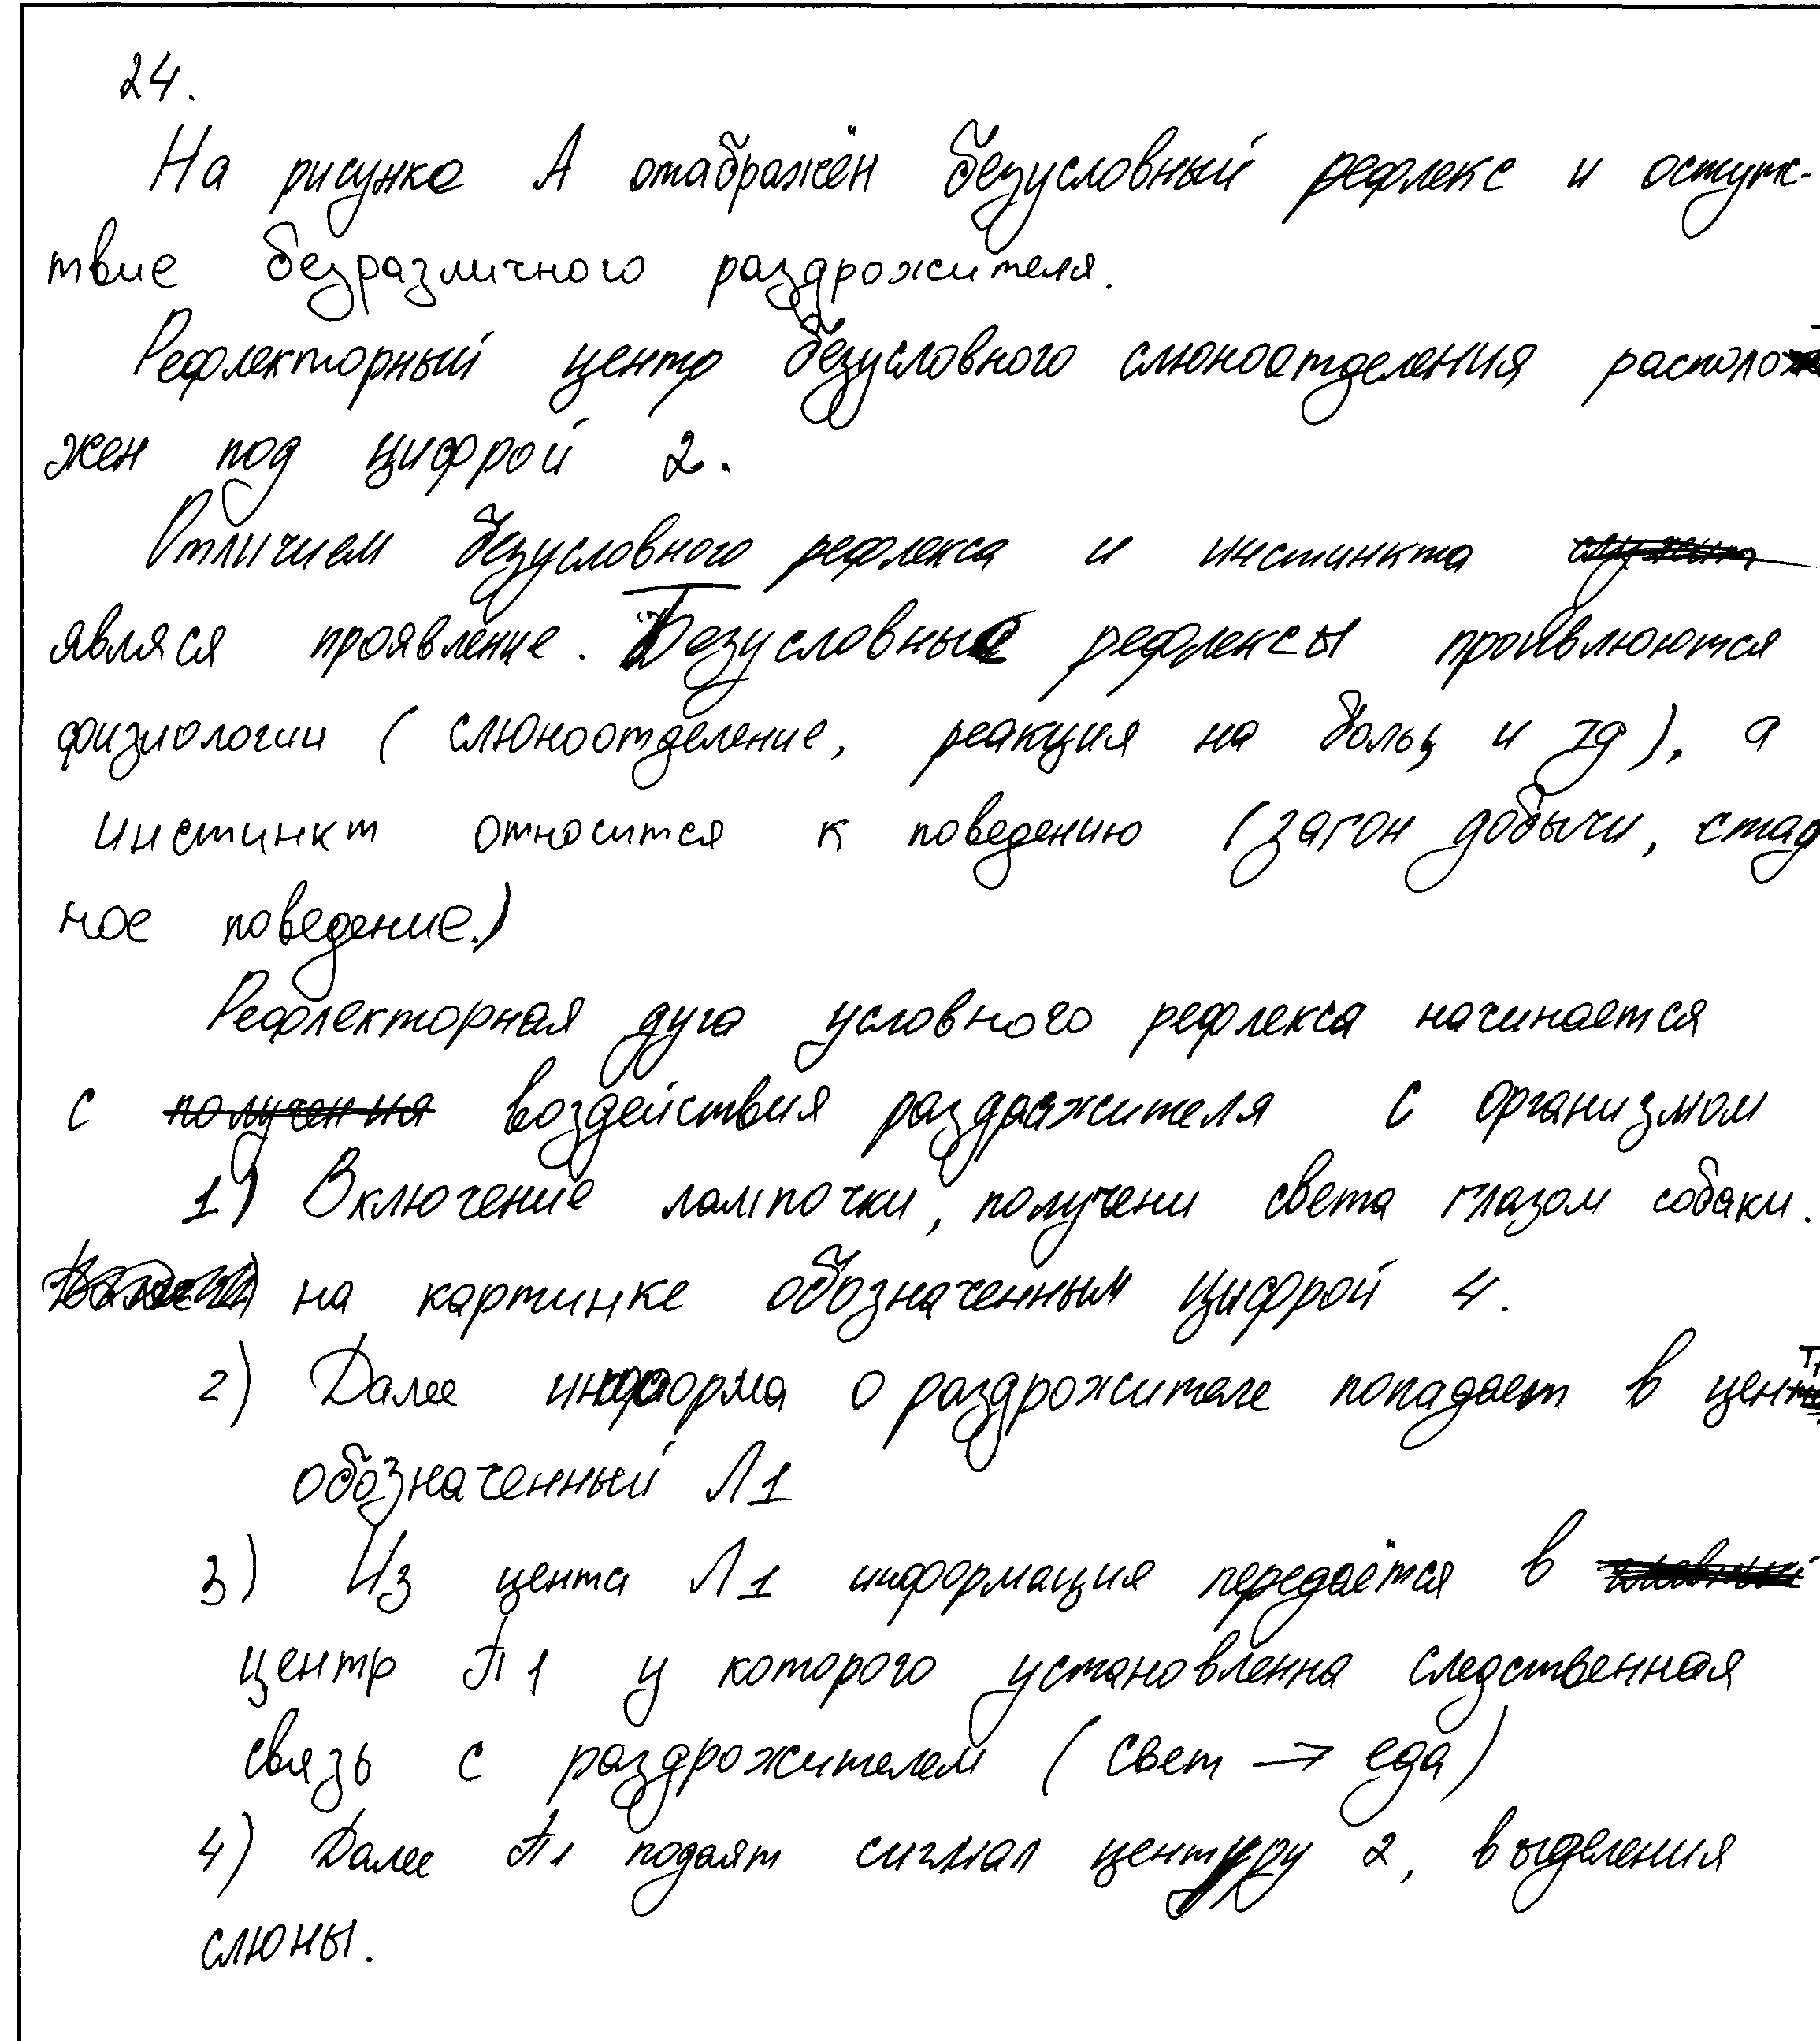 24.
На рисунке А отабражён безусловный рефлекс и остутс-
твие безразличного раздрожителя.
Рефлекторный центр безусловного слюноотделения располо
жен под цифрой 2.
Отличием безусловного рефлекса и инстинкта
являся проявление. Безусловные рефлексы проявлюются
физиологии (слюноотделение, реакция на боль, и тд), а
инстинкт относится к поведению (загон добычи, стад
ное поведение.)
Рефлекторная дуга условного рефлекса начинается
с получения воздействия раздражителя с организмом
1) Включение лампочки, получени света глазом собаки.
на картинке обозначенным цифрой 4.
2) Далее информа о раздрожителе попадает в цент
обозначенный Л1
3) Из цента Л1 информация передаётся в
центр П1 у которого установленна следственная
связь с раздрожителем (свет → еда)
4) Далее П1 подаят сигнал центру 2, выделения
слюны.